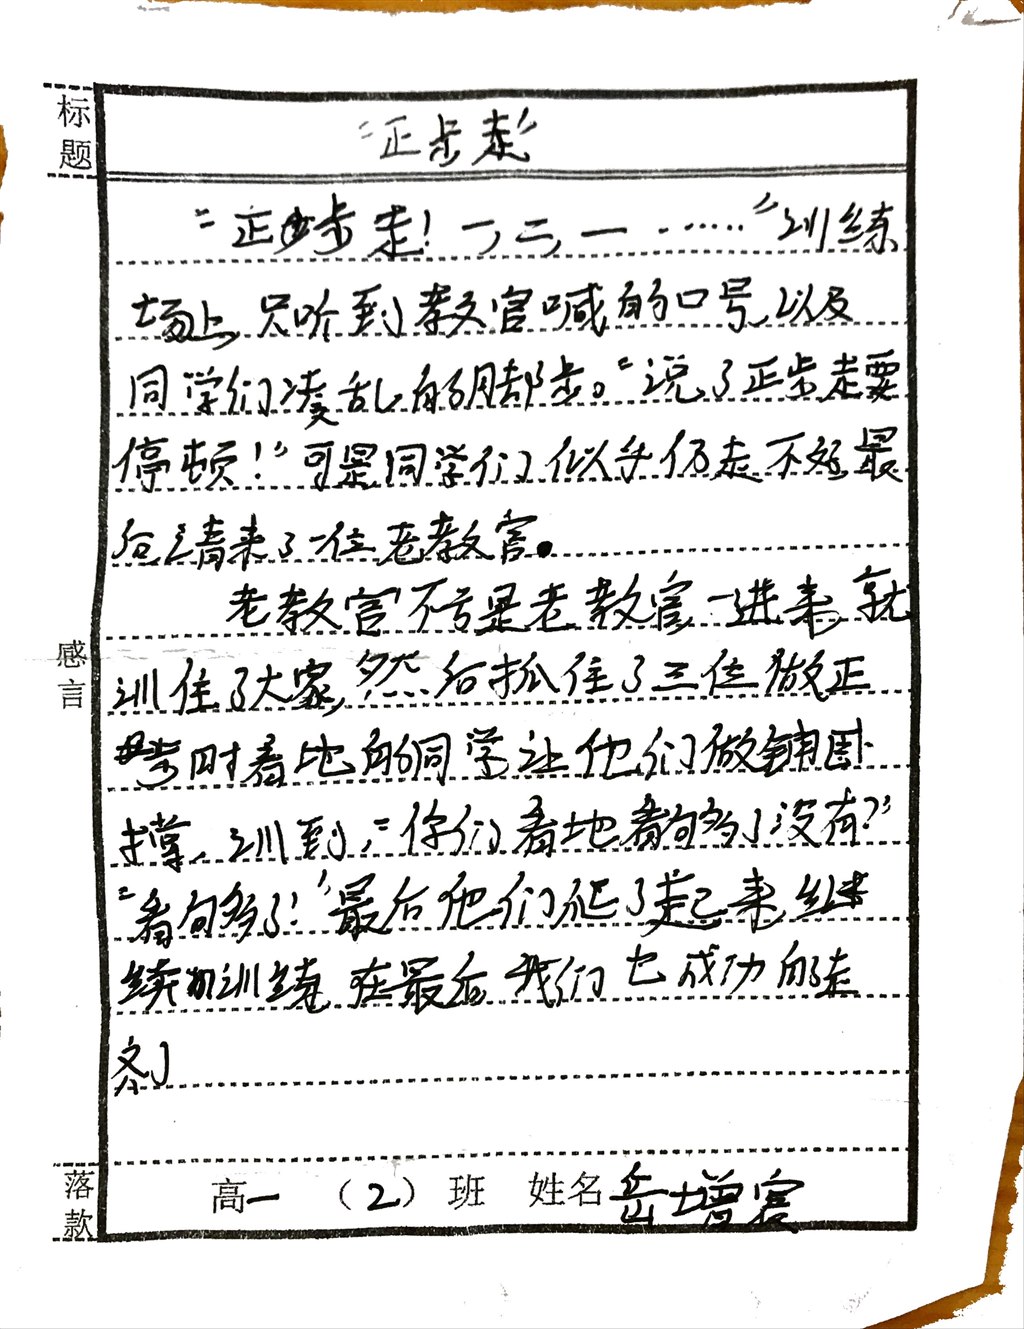 标题
"正步走"
"正步走！一，二，一……"训练
场上，只听到教官喊的口号，以及
同学们凑乱的脚步。"说了正步走要
停顿！"可是同学们似乎仍走不好最
后请来了一位老教官。
老教官不亏是老教官，一进来，就
训住了大家，然后抓住了三位做正
步时看地的同学让他们做铺卧
撑，训到，"你们看地看够了没有？"
"看够了！"最后他们爬了起来继
续训练，在最后我们也成功的走
齐了
感言
落款
高一（2）班 姓名 岳增宸